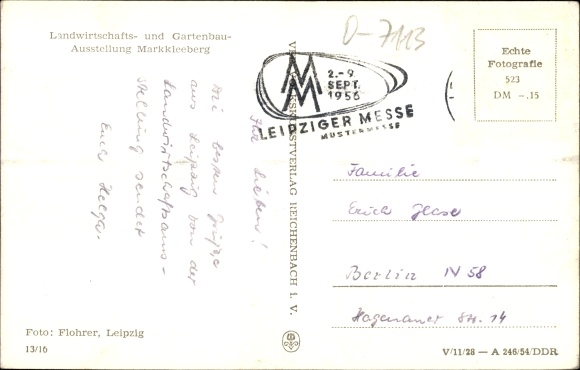 Landwirtschafts- und Gartenbau-
Ausstellung Markkleeberg
D-7113
MM
2.-9
SEPT.
1956
LEIPZIGER MESSE
MUSTERMESSE
Echte
Fotografie
523
DM -.15
Ihr Lieben!
Die besten Grüße
aus Leipzig von der
Landwirtschaftsaus-
stellung sendet
Eure Helga
REICHENBACH i. V.
Familie
Erich
Berlin N 58
Hagenauer Str. 14
Foto: Flohrer, Leipzig
13/16
V/11/28 — A 246/54/DDR